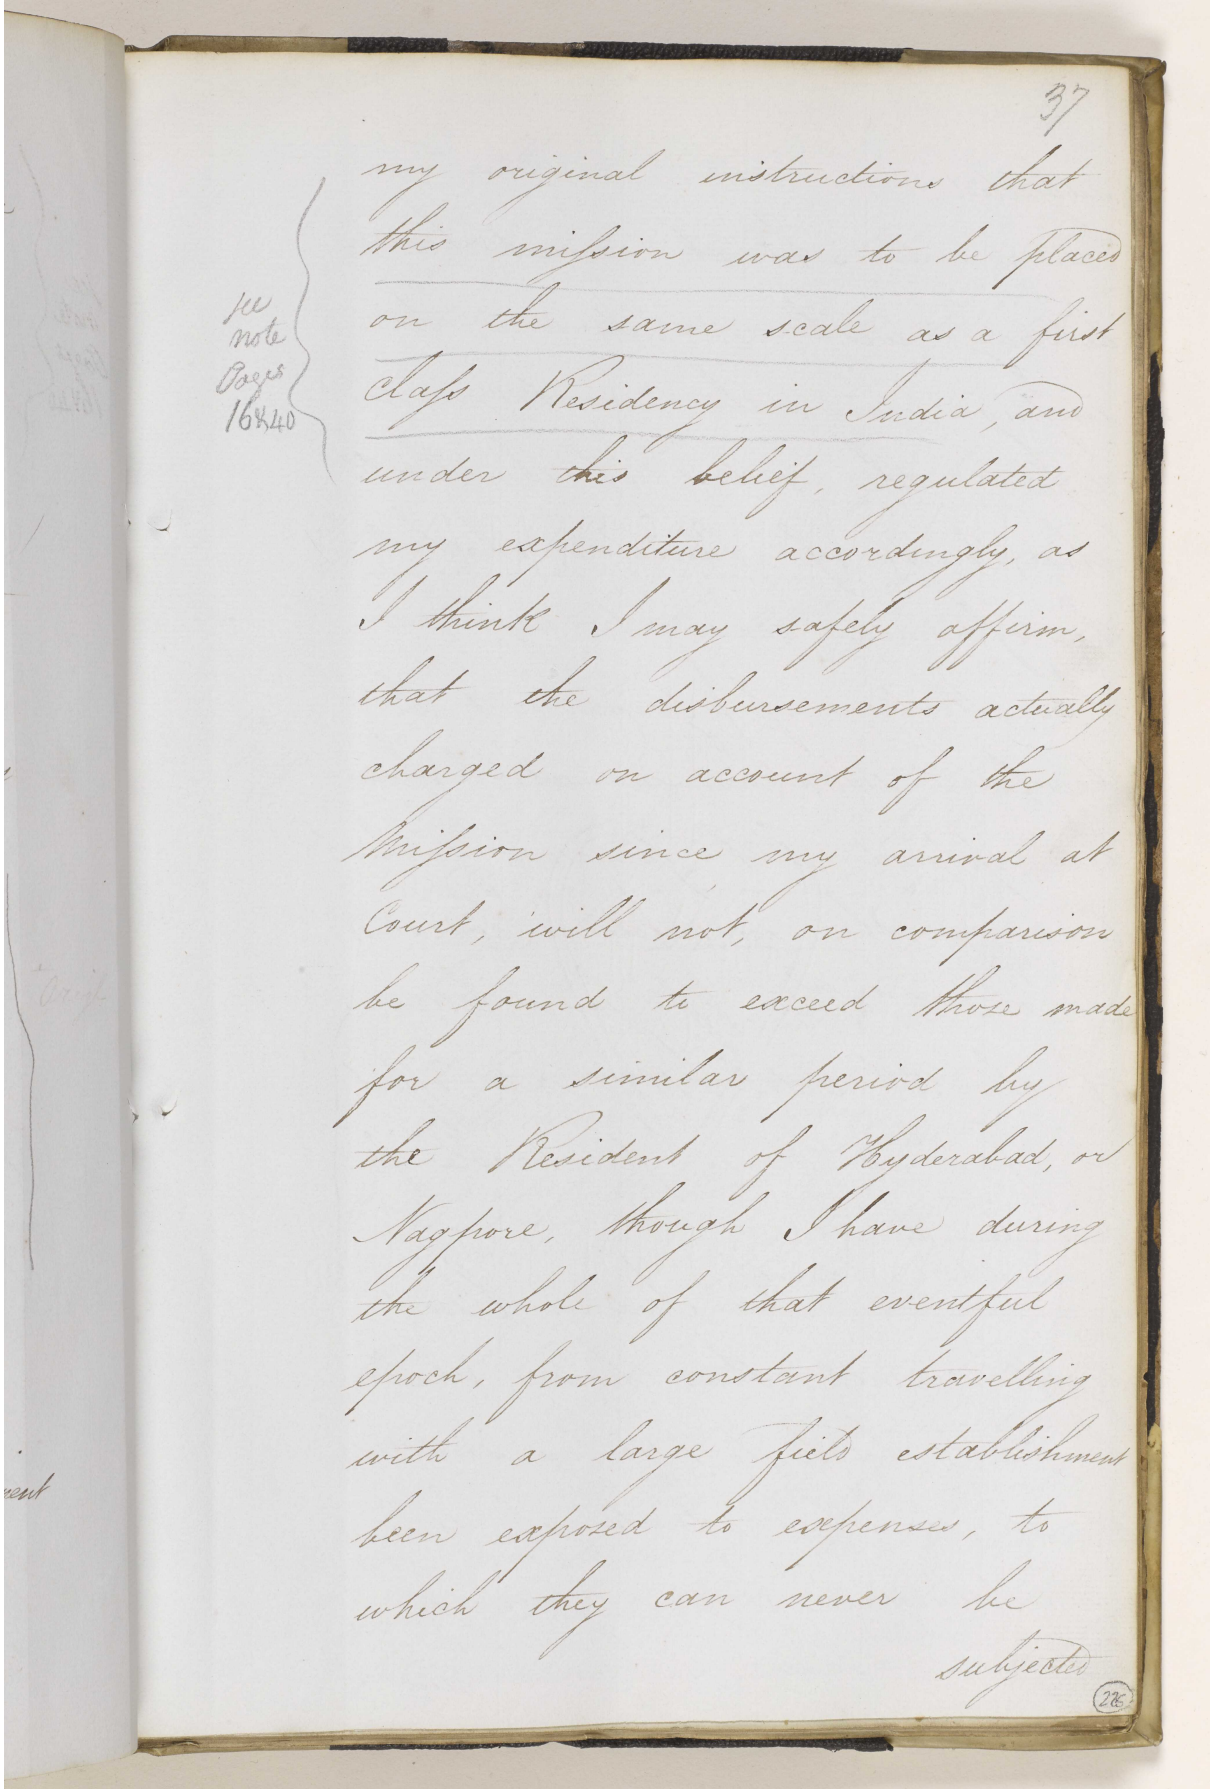 37
my original instructions that
this mission was to be placed
on the same scale as a first
class Residency in India, and
see
note
Pages
16 & 40
under this belief, regulated
my expenditure accordingly, as
I think I may safely affirm,
that the disbursements actually
charged on account of the
Mission since my arrival at
Court, will not, on comparison
be found to exceed those made
for a similar period by
the Resident of Hyderabad, or
Nagpore, though I have during
the whole of that eventful
epoch, from constant travelling
with a large field establishment
been exposed to expenses, to
which they can never be
subjected